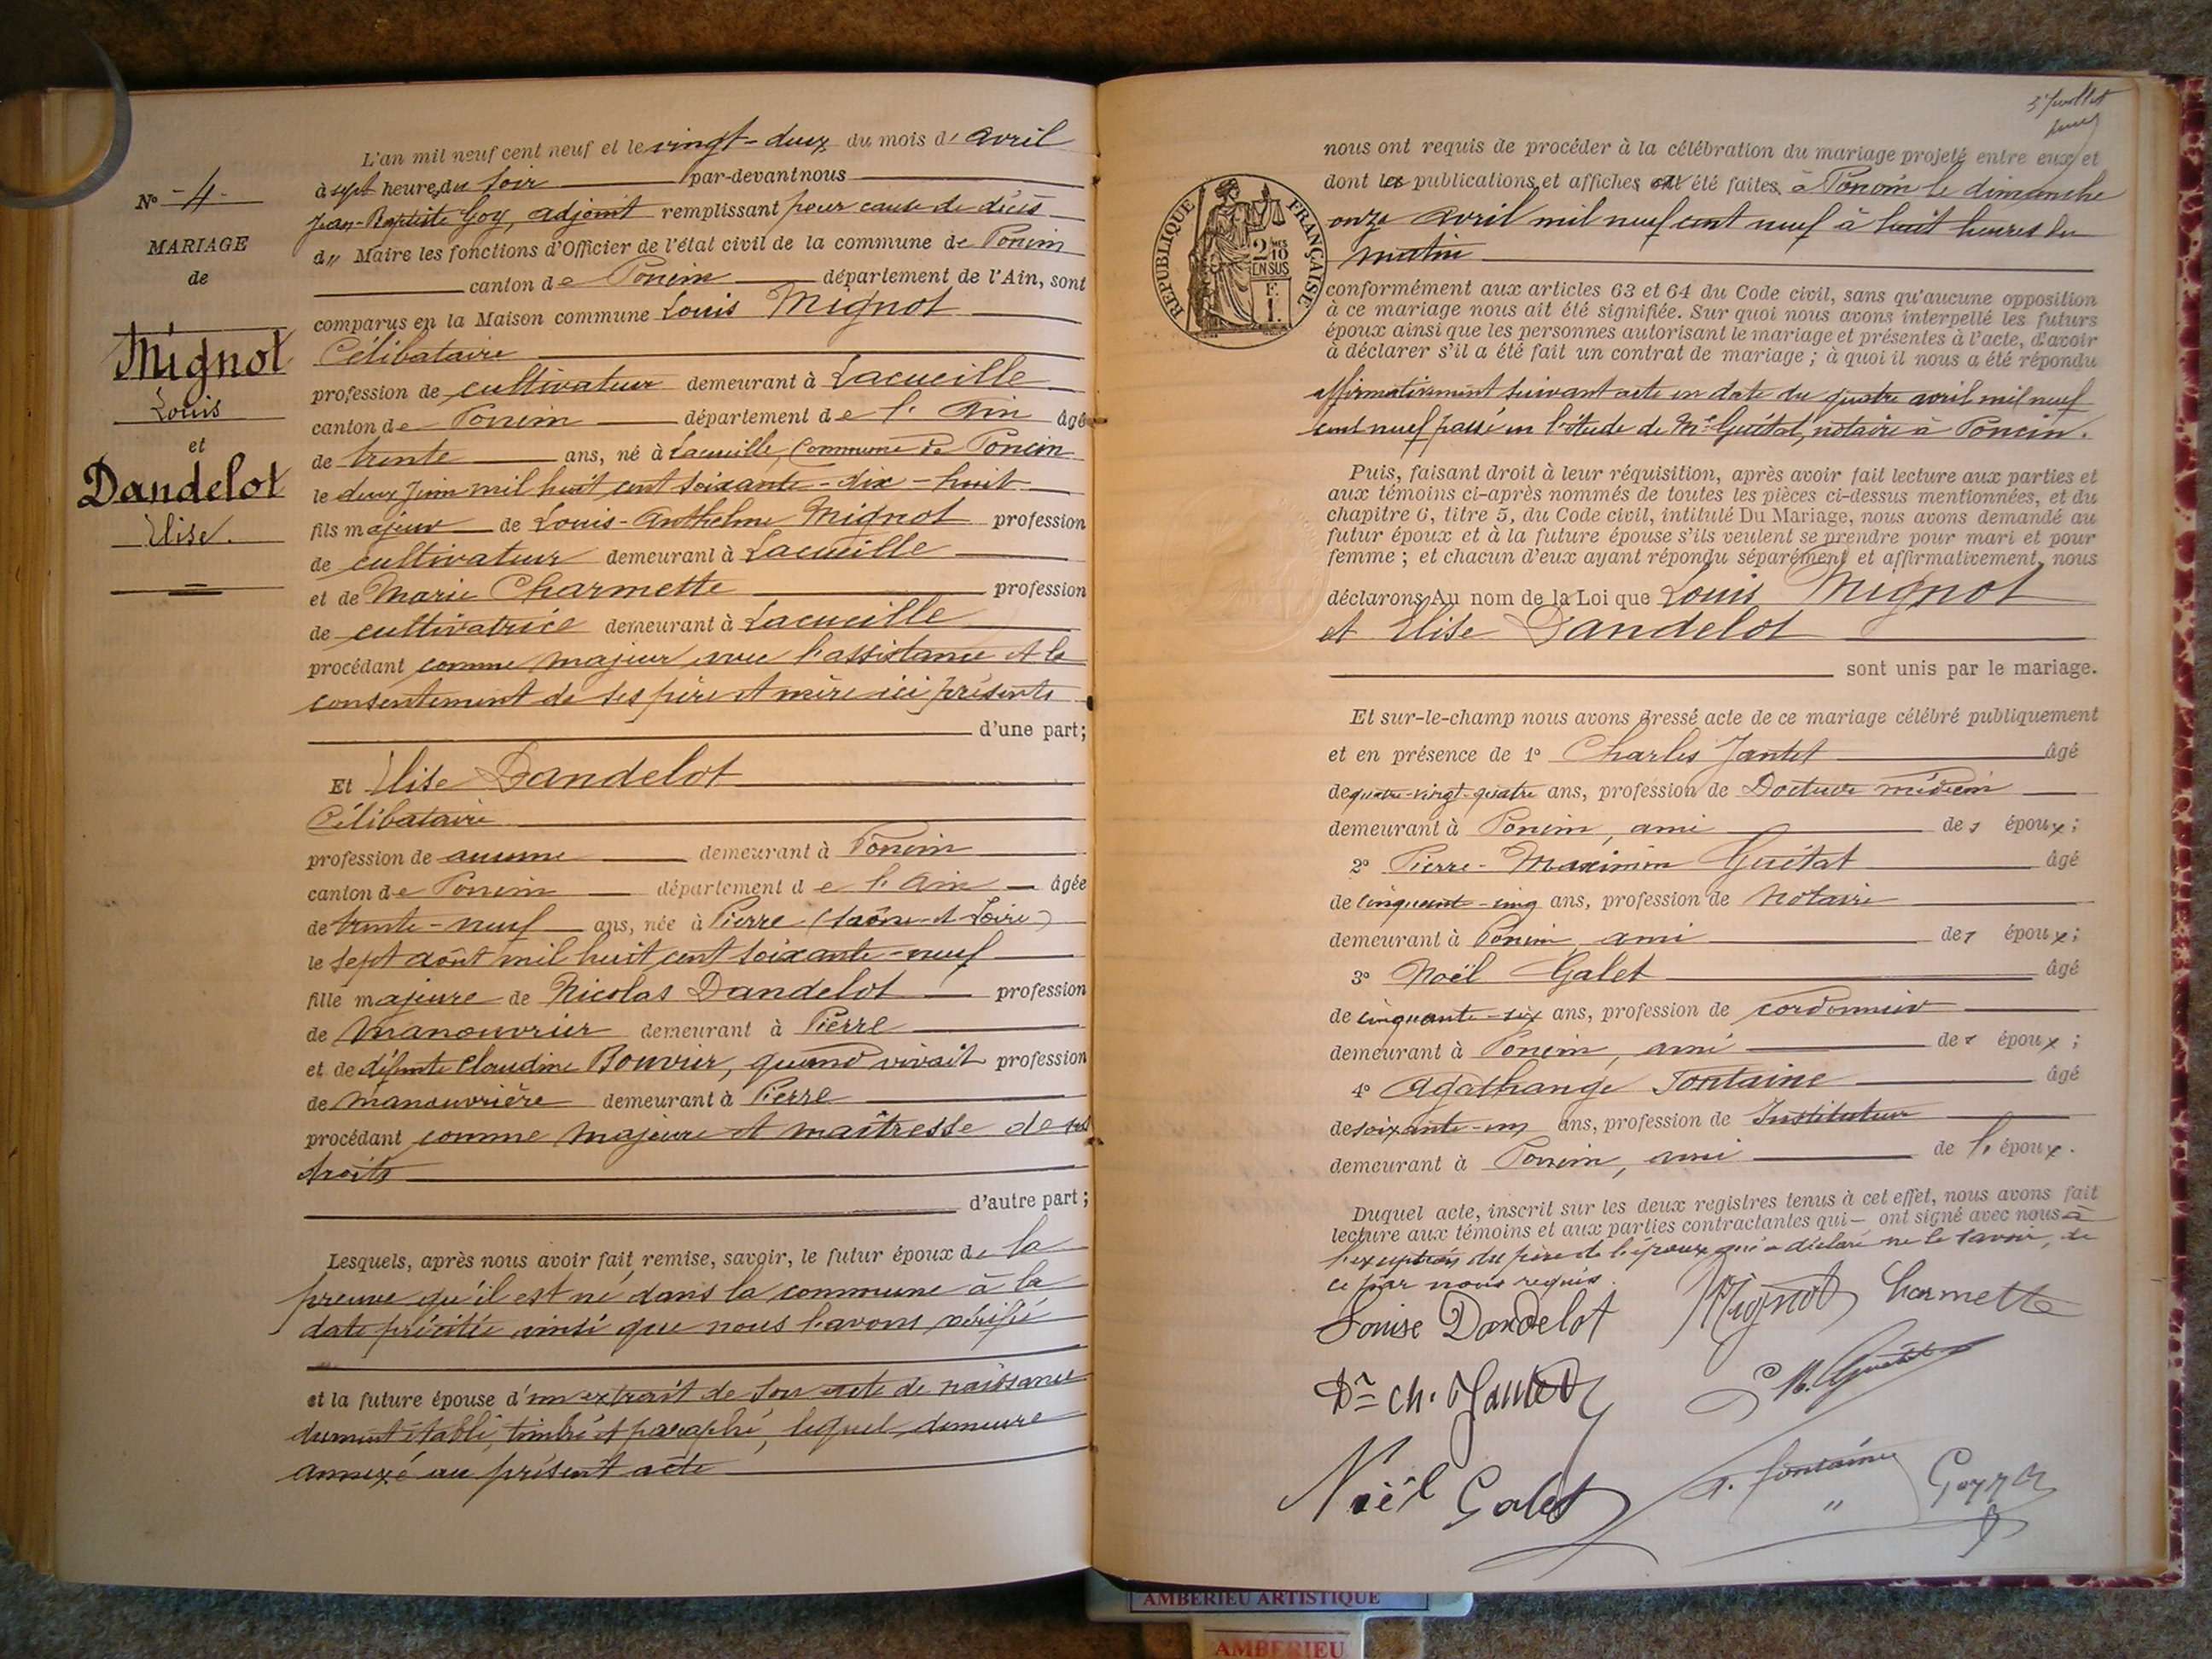 N° - 4 -
MARIAGE
de
Mignot
Louis
et
Dandelot
Elise.
L'an mil neuf cent neuf et le vingt-deux du mois d' avril
à sept heures du soir par-devant nous
Jean-Baptiste Goy, adjoint remplissant pour cause de décès
du Maire les fonctions d'Officier de l'état civil de la commune de Poncin
canton de Poncin département de l'Ain, sont
comparus en la Maison commune Louis Mignot
Célibataire
profession de cultivateur demeurant à Lacueille
canton de Poncin département de l'Ain âgé
de trente ans, né à Lacueille, Commune de Poncin
le deux Juin mil huit cent soixante-dix-huit
fils majeur de Louis-Anthelme Mignot profession
de cultivateur demeurant à Lacueille
et de Marie Charmette profession
de cultivatrice demeurant à Lacueille
procédant comme majeur avec l'assistance et le
consentement de ses père et mère ici présents
d'une part;
Et Elise Dandelot
Célibataire
profession de aucune demeurant à Poncin
canton de Poncin département de l'Ain âgée
de trente-neuf ans, née à Pierre (Saône-et-Loire)
le sept août mil huit cent soixante-neuf
fille majeure de Nicolas Dandelot profession
de manouvrier demeurant à Pierre
et de défunte Claudine Bouvier, quand vivait profession
de manouvrière demeurant à Pierre
procédant comme majeure et maîtresse de ses
droits
d'autre part;
Lesquels, après nous avoir fait remise, savoir, le futur époux de la
preuve qu'il est né dans la commune à la
date précitée ainsi que nous l'avons vérifié
et la future épouse d'un extrait de son acte de naissance
dument établi, timbré et paraphé, lequel demeure
annexé au présent acte
nous ont requis de procéder à la célébration du mariage projeté entre eux et
dont les publications et affiches ont été faites à Poncin le dimanche
onze avril mil neuf cent neuf à huit heures du
matin
RÉPUBLIQUE FRANÇAISE
2 10
EN SUS
F.
1.
conformément aux articles 63 et 64 du Code civil, sans qu'aucune opposition
à ce mariage nous ait été signifiée. Sur quoi nous avons interpellé les futurs
époux ainsi que les personnes autorisant le mariage et présentes à l'acte, d'avoir
à déclarer s'il a été fait un contrat de mariage; à quoi il nous a été répondu
affirmativement suivant acte en date du quatre avril mil neuf
cent neuf passé en l'étude de Me Guétat, notaire à Poncin.
Puis, faisant droit à leur réquisition, après avoir fait lecture aux parties et
aux témoins ci-après nommés de toutes les pièces ci-dessus mentionnées, et du
chapitre 6, titre 5, du Code civil, intitulé Du Mariage, nous avons demandé au
futur époux et à la future épouse s'ils veulent se prendre pour mari et pour
femme; et chacun d'eux ayant répondu séparément et affirmativement, nous
déclarons Au nom de la Loi que Louis Mignot
et Elise Dandelot
sont unis par le mariage.
Et sur-le-champ nous avons dressé acte de ce mariage célébré publiquement
et en présence de 1° Charles Jantet âgé
de quatre-vingt-quatre ans, profession de Docteur médecin
demeurant à Poncin, ami des époux;
2° Pierre-Maximin Guétat âgé
de cinquante-cinq ans, profession de Notaire
demeurant à Poncin, ami des époux;
3° Noël Galet âgé
de cinquante-six ans, profession de cordonnier
demeurant à Poncin, ami des époux;
4° Agathange Fontaine âgé
de soixante-un ans, profession de Instituteur
demeurant à Poncin, ami de l'époux.
Duquel acte, inscrit sur les deux registres tenus à cet effet, nous avons fait
lecture aux témoins et aux parties contractantes qui - ont signé avec nous à
l'exception du père de l'époux qui a déclaré ne le savoir, de
ce par nous requis.
Louise Dandelot Mignot Charmette
Dr Ch. Jantet P. M. Guétat
Noël Galet A. Fontaine Goy
AMBERIEU ARTISTIQUE
AMBERIEU